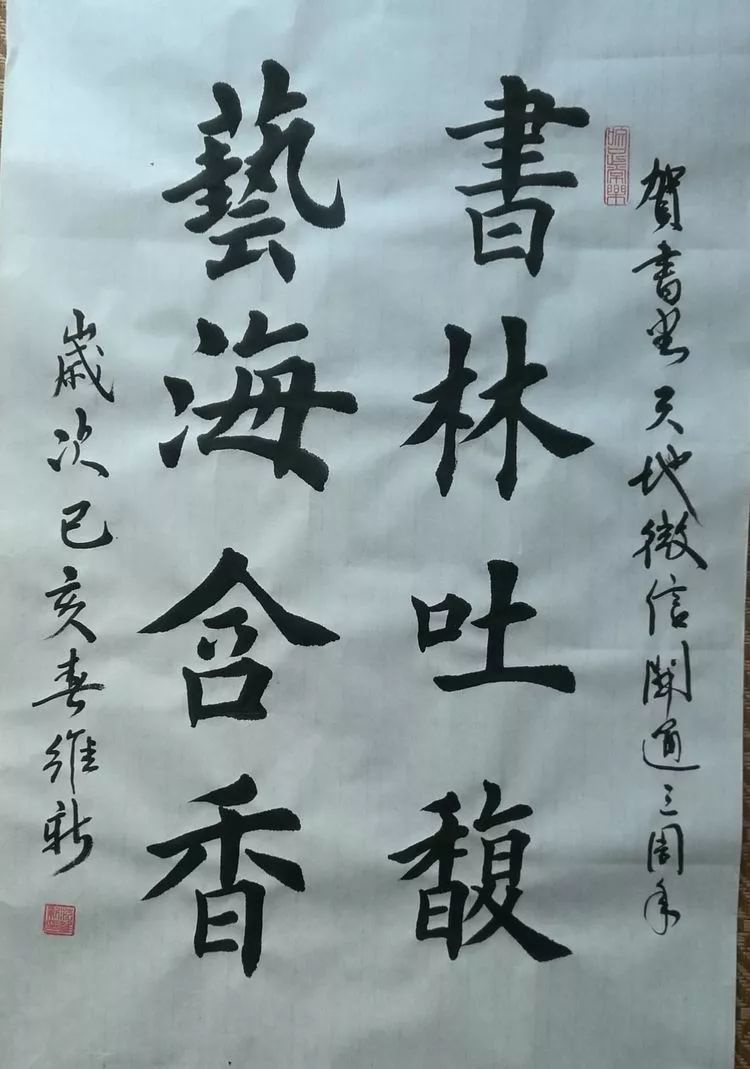 賀書天地微信開通三周年
知足常樂
書林吐馥
藝海含香
歲次己亥春維新